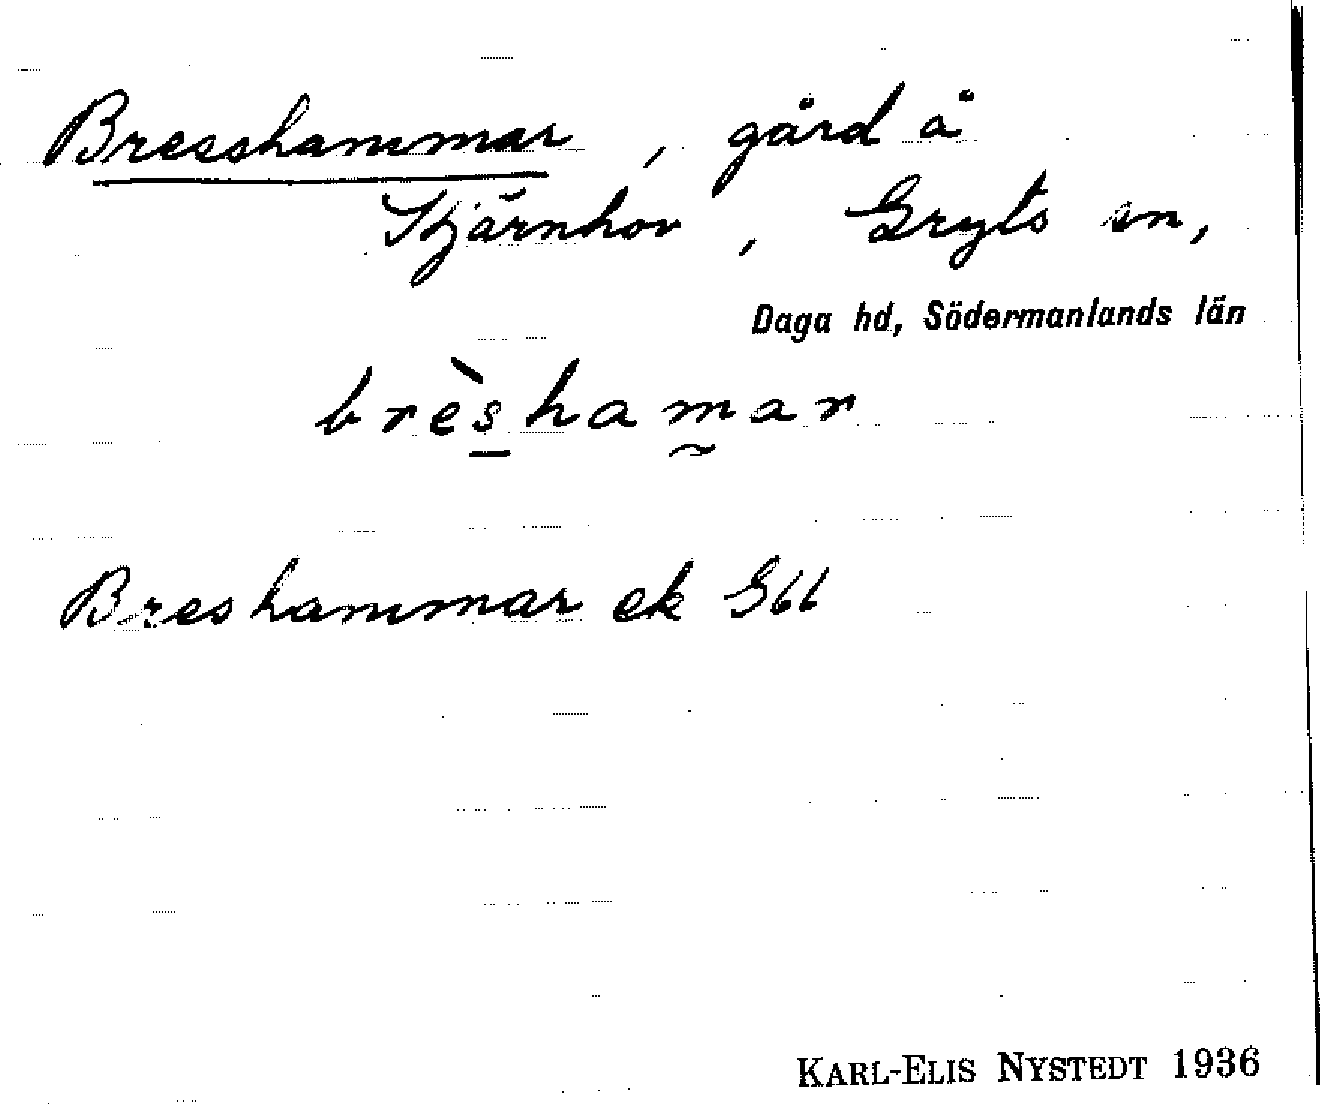 Bresshammar, gård å
Stjärnhov, Gryts sn,
Daga hd, Södermanlands län
brèshamar
Breshammar ek Gbb
KARL-ELIS NYSTEDT 1936